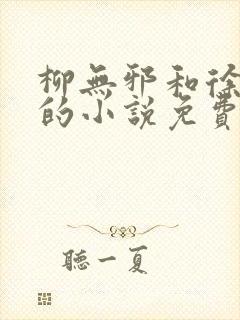 柳無邪和徐
的小説免費
聽一夏